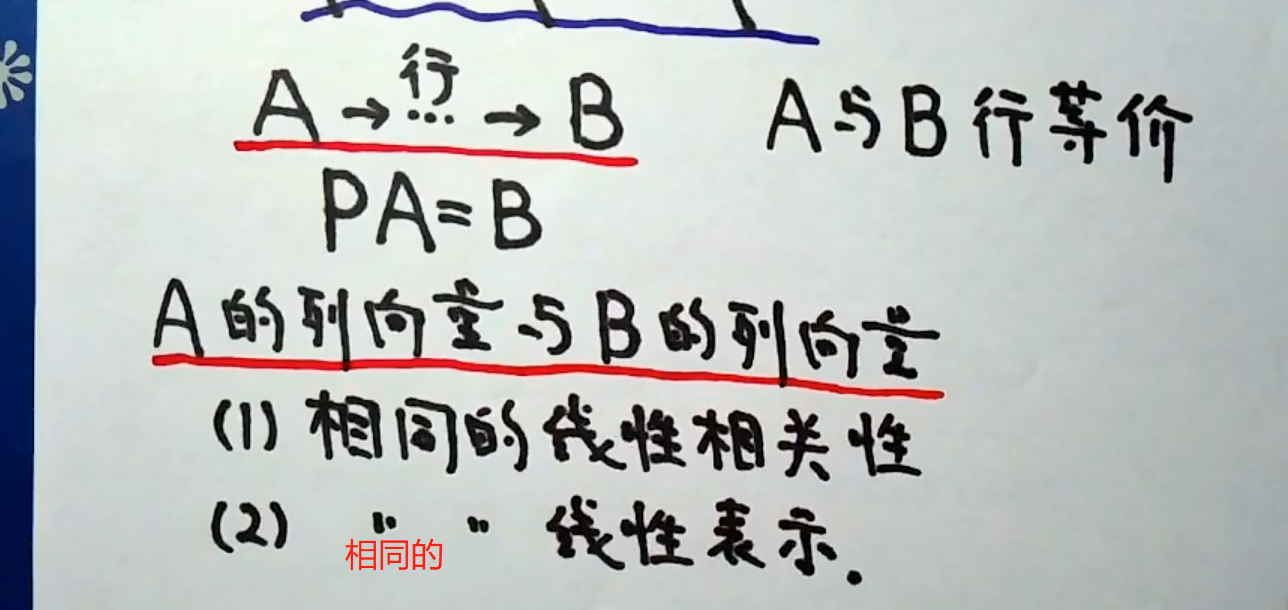 A → 行 ... → B A与B行等价
PA=B
A的列向量与B的列向量
(1) 相同的线性相关性
(2) " " 线性表示.
相同的